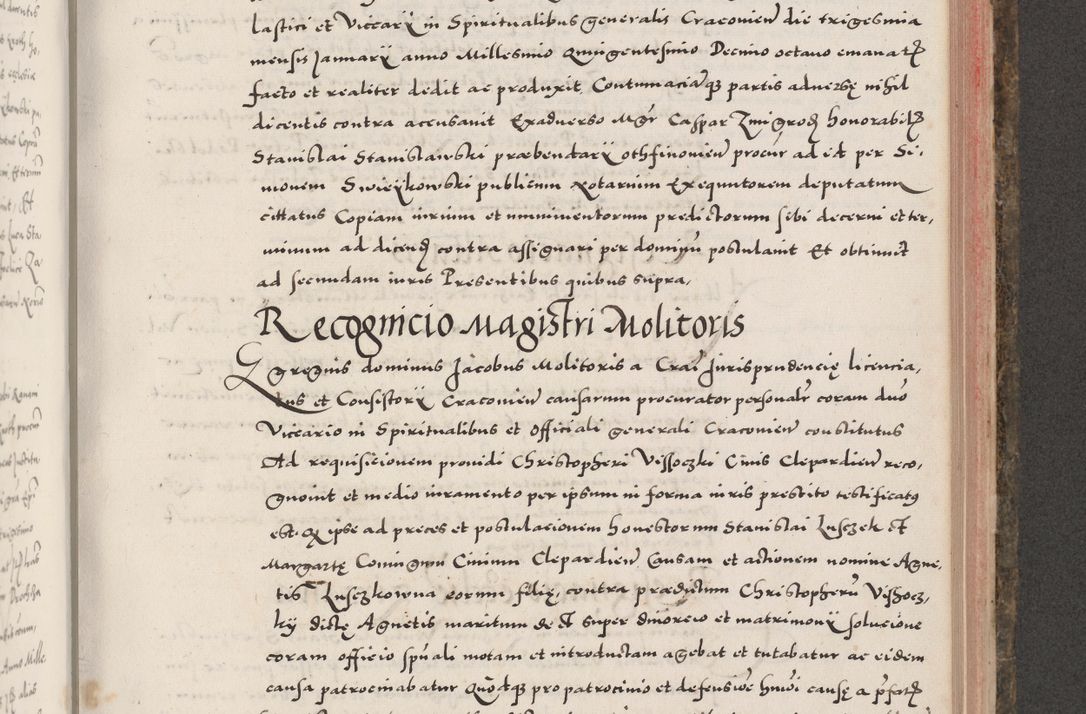 lastici et Vicarÿ in Spiritualibus generalis Cracovien die trigesima
mensis Januarÿ anno Millesimo Quingentesimo Decimo octavo emanat
facto et realiter dedit ac produxit, Contumaciaqz partis adversę nihil
dicentis contra accusavit Exadverso Mgr Caspar Zmigrod honorabil
Stanislai Stanislawski præbendarÿ procur ad id per Si,
monem Swieÿkowski publicum Notarium Exequutorem deputatum
cittatus Copiam iurium et munimentorum predictorum sibi decerni et ter,
minum ad dicend contra assignari per dominū postulavit Et obtinuit
ad secundam iuris Presentibus quibus supra,
Recognicio Magistri Molitoris
Egregius dominus Jacobus Molitoris a Crai Jurisprudencię licencia,
tus et Consistorÿ Cracovien causarum procurator personalr coram duo
Vicario in Spiritualibus et Officiali generali Cracovien constitutus
Ad requisicionem providi Christopheri Vissoczki Civis Clepardien reco,
gnovit et medio iuramento per ipsum in forma iuris prestito testificatq
est: Qz ipse ad preces et postulacionem honestorum Stanislai Lusczek et
Margartę Coniugum Civium Clepardien Causam et actionem nomine Agne,
tis Lusczkowna eorum filię, contra prædictum Christopherū Vissocz,
kÿ dictę Agnetis maritum de et super divorcio et matrimonÿ solucione
coram officio spuali motam et introductam agebat et tutabatur ac eidem
causa patrocinabatur Quodqz pro patrocinio et defensiōe causę a pfat